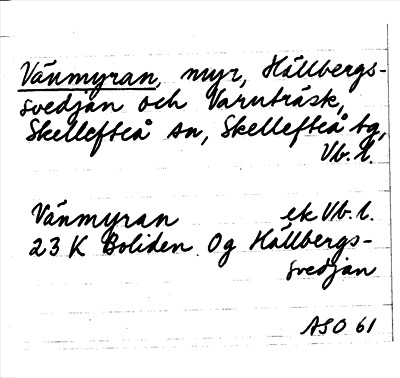 Vänmyran, myr, Hällbergs-
svedjan och Varuträsk,
Skellefteå sn, Skellefteå tg,
Vb. l.
Vänmyran ek Vb. l.
23 K Boliden Og Hällbergs-
svedjan
ASO 61